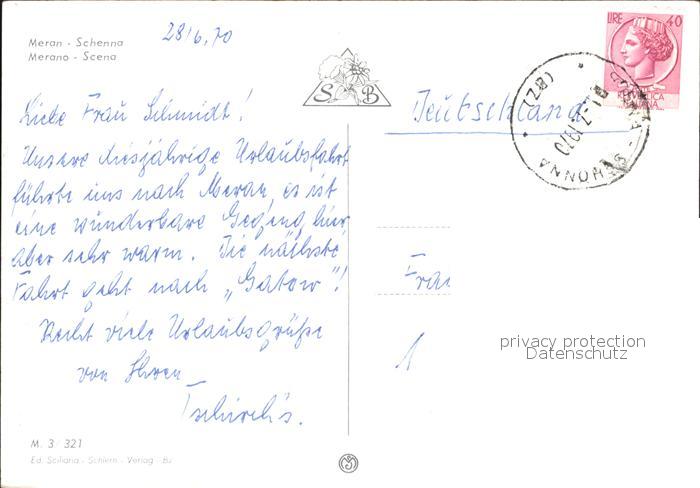 Meran - Schenna
Merano - Scena
28/6.70
Liebe Frau Schmidt!
Unsere diesjährige Urlaubsfahrt
führte uns nach Meran, es ist
eine wunderbare Gegend hier,
aber sehr warm. Die nächste
Fahrt geht nach „Gatow"!
Recht viele Urlaubsgrüße
von Ihren
M. 3/321
Ed. Siciliana - Schlern - Verlag - Bz
S B
LIRE 40
Deutschland
(BZ)
1-7.1970
SCHENNA
Frau
privacy protection
Datenschutz